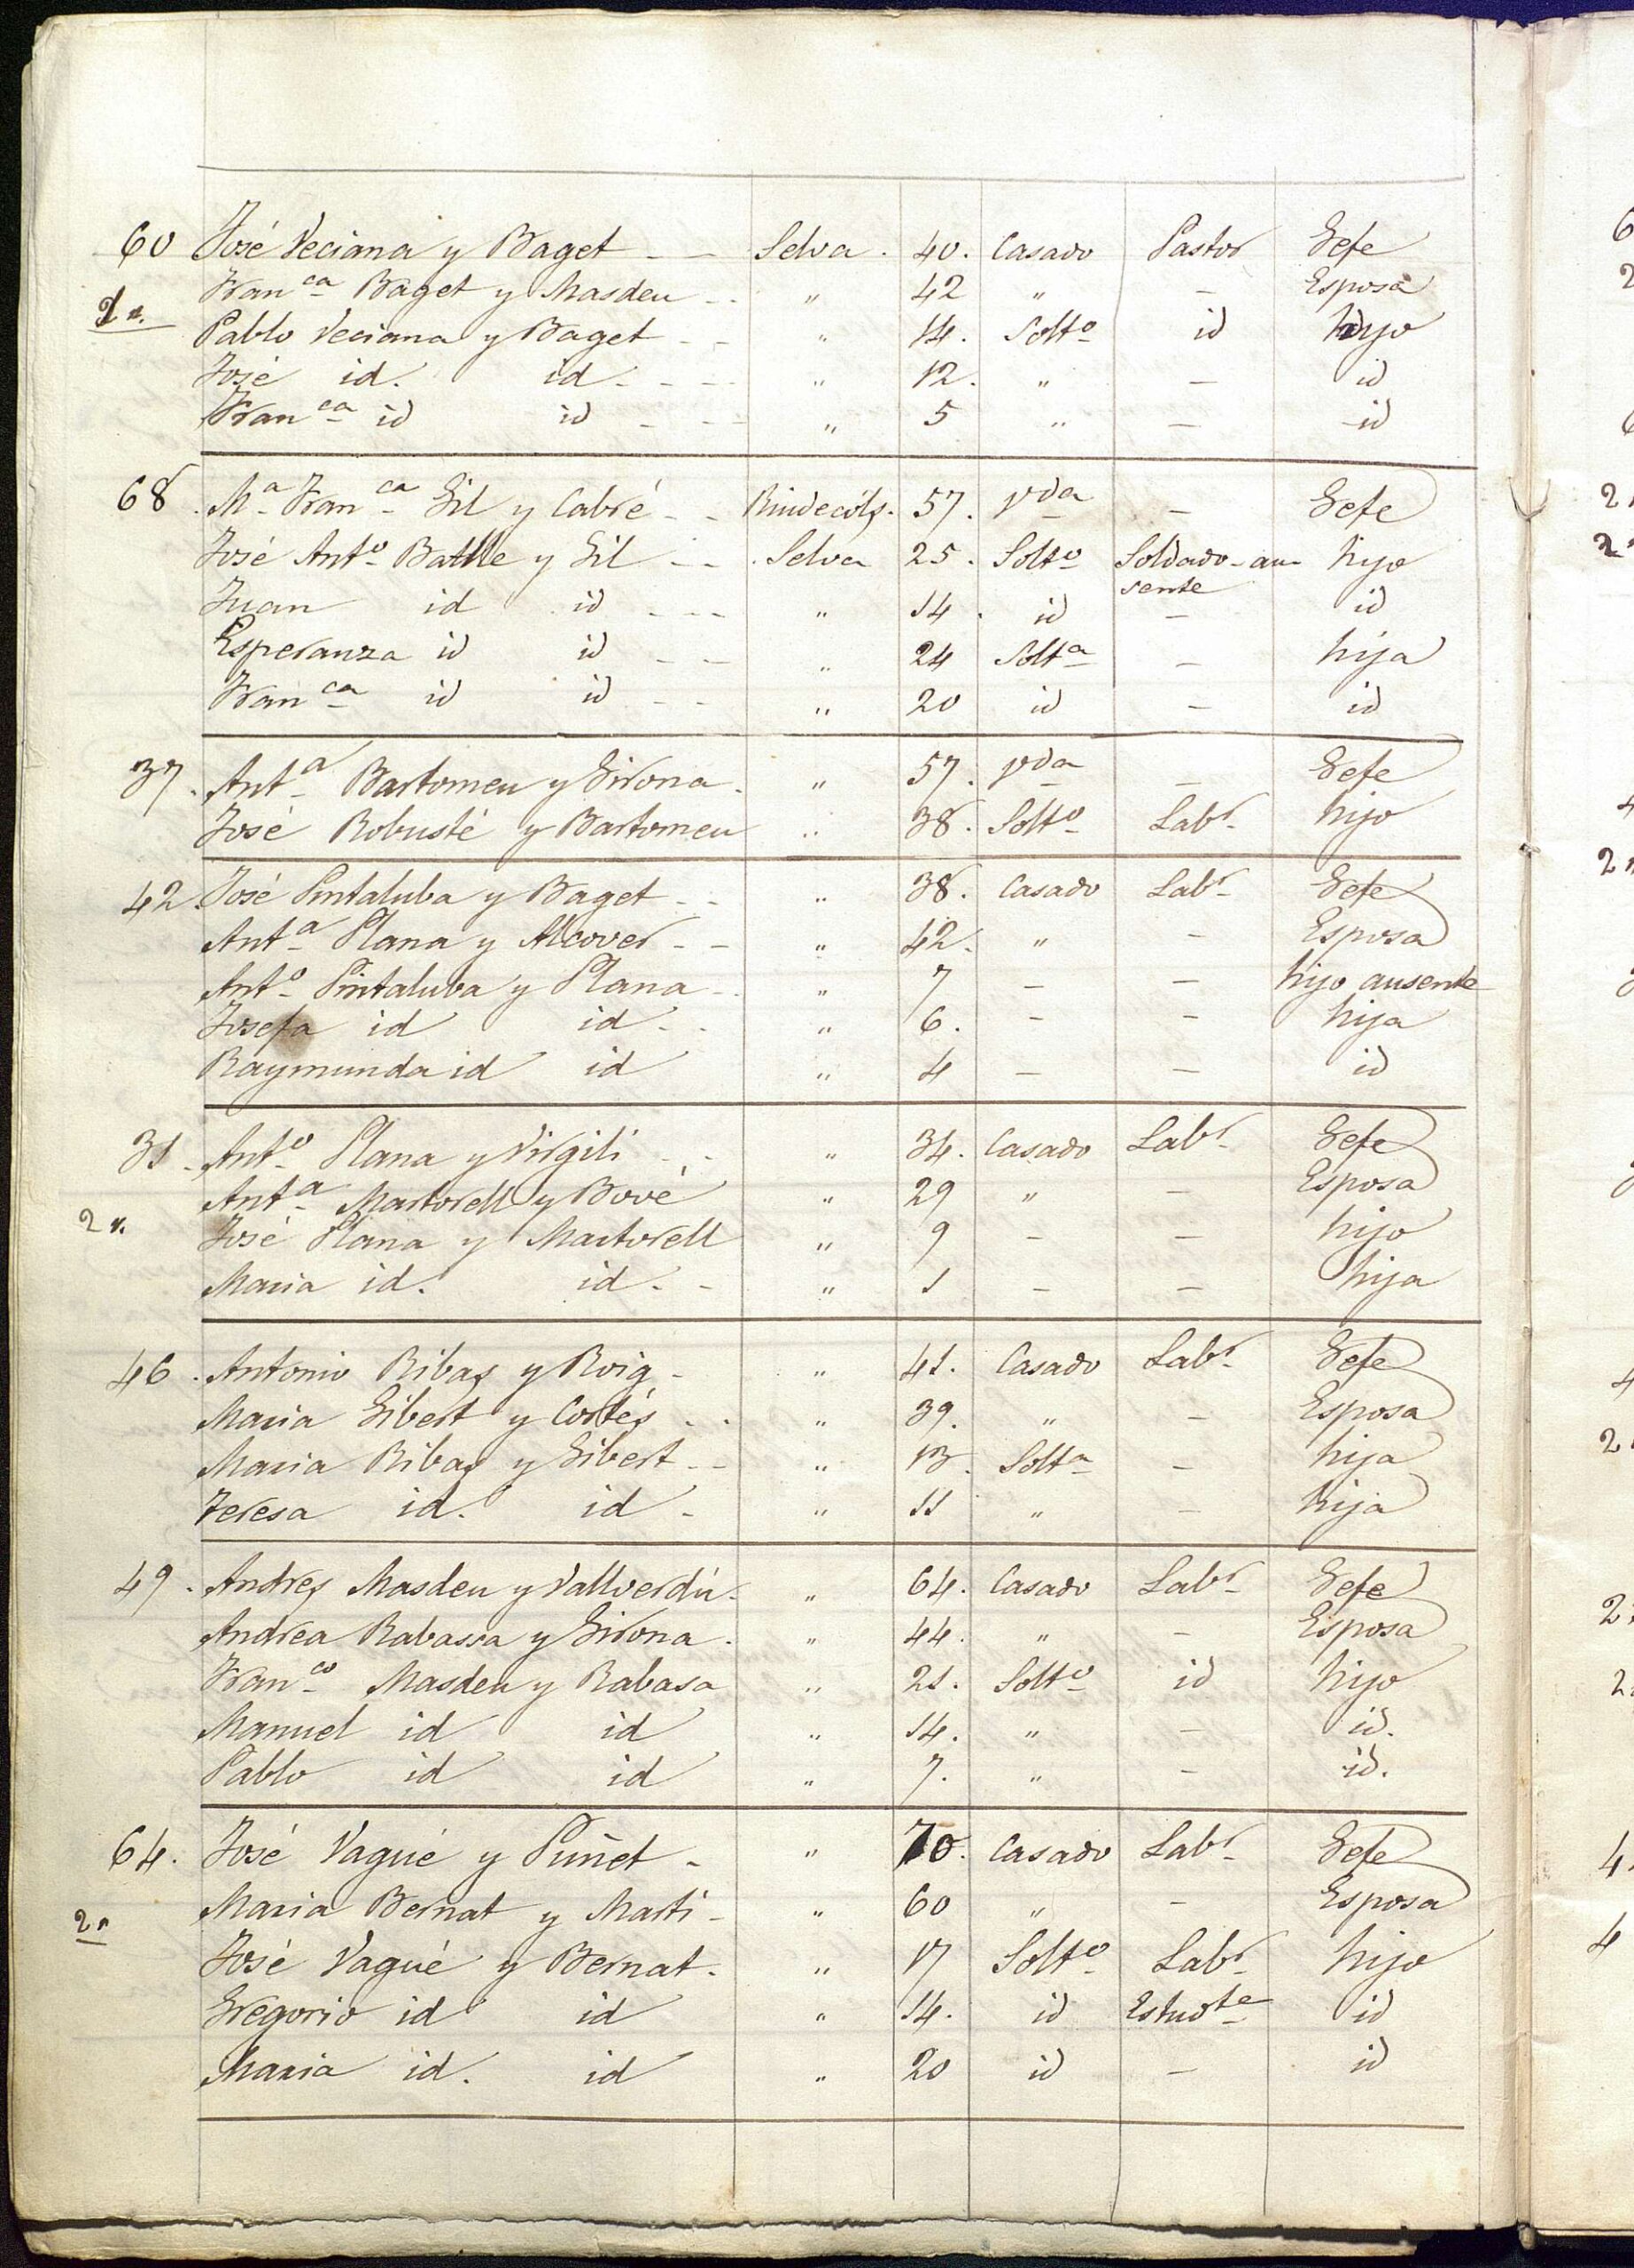 60 José Veciana y Baget - - Selva . 40. Casado Pastor Gefe
Franca Baget y Masdeu - - " 42 " - Esposa
2 v. Pablo Veciana y Baget - - " 14. Solto id hijo
José id. id - - - " 12. " - id
Franca id id - - - " 5 " - id
68 . Ma Franca Gil y Cabré - - Riudecols. 57. Vda - Gefe
José Anto Batlle y Gil - - . Selva 25. Solto Soldado-au- hijo
sente
Juan id id - - - " 14 . id - id
Esperanza id id - - " 24 Solta - hija
Franca id id - - " 20 id - id
37 . Anta Bartomeu y Girona . " 57. Vda - Gefe
José Robusté y Bartomeu " 38. Solto Labr hijo
42 . José Pintaluba y Baget - - " 38. Casado Labr Gefe
Anta Plana y Alcover - - " 42. " - Esposa
Anto Pintaluba y Plana - - " 7 - - hijo ausente
Josefa id id - - " 6. - - hija
Raymunda id id " 4 - - id
31 . Anto Plana y Virgili - - " 34. Casado Labr Gefe
Anta Martorell y Bové " 29 " - Esposa
2 v. José Plana y Martorell " 9 - - hijo
Maria id. id - - " 1 - - hija
46 . Antonio Ribas y Roig - " 41. Casado Labr Gefe
Maria Gibert y Cortés - - " 39. " - Esposa
Maria Ribas y Gibert - - " 13. Solta - hija
Teresa id. id - " 11 " - hija
49 . Andres Masdeu y Vallverdú - " 64. Casado Labr Gefe
Andrea Rabassa y Girona . " 44. " - Esposa
Franco Masdeu y Rabasa " 21. Solto id hijo
Manuel id id " 14. " - id.
Pablo id id " 7. " - id.
64. José Vagué y Puñet - " 70. Casado Labr Gefe
Maria Bernat y Marti - " 60 " - Esposa
José Vagué y Bernat . " 17 Solto Labr hijo
Gregorio id id " 14. id Estudte id
Maria id. id " 20 id - id